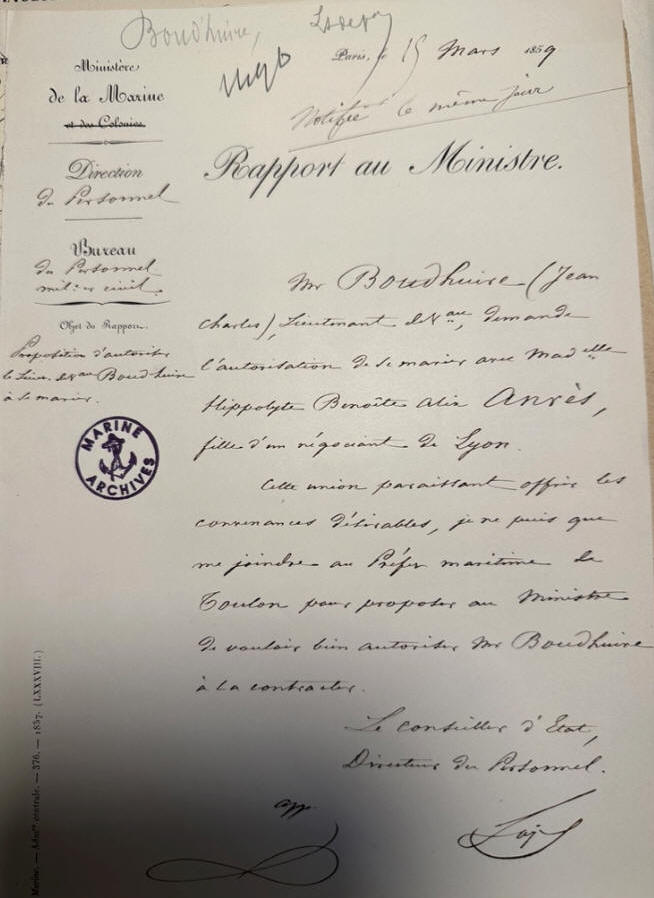 Boud'huire,
Paris, le 15 Mars 1859
Notifiée le même jour
Ministère
de la Marine
et des Colonies
Direction
du Personnel
Bureau
du Personnel
mil.re et civil.
Objet du Rapport.
Proposition d'autoriser
le Lieut. de Vau Boudhuire
à se marier.
MARINE ARCHIVES
Rapport au Ministre.
Mr Boudhuire (Jean
Charles), Lieutenant de Vau, demande
l'autorisation de se marier avec Madelle
Hippolyte Benoîte Alix Anrès,
fille d'un négociant de Lyon.
Cette union paraissant offrir les
convenances désirables, je ne puis que
me joindre au Préfet maritime de
Toulon pour proposer au Ministre
de vouloir bien autoriser Mr Boudhuire
à la contracter.
Le conseiller d'Etat,
Directeur du Personnel.
app.
Marine. — Admon centrale. — 376. — 1857. (LXXXVIII.)